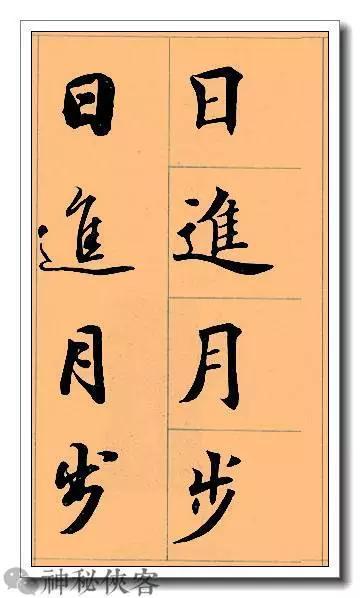 日進月步
日進月步
神秘侠客